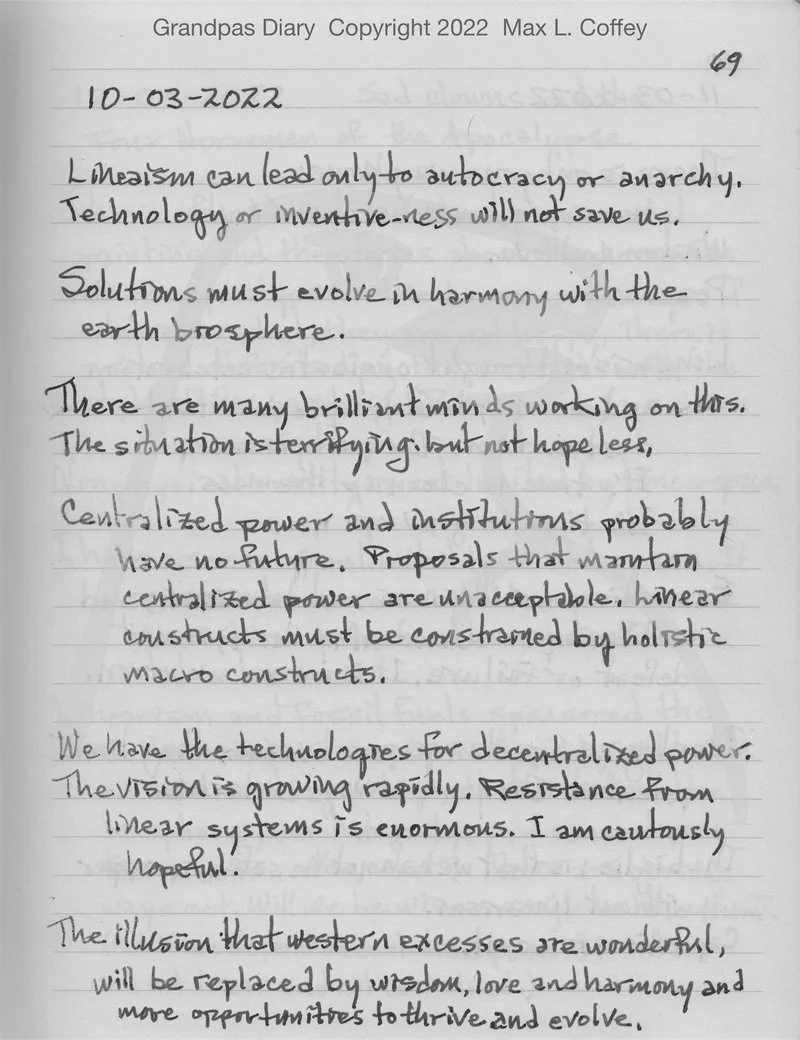 Grandpas Diary Copyright 2022 Max L. Coffey
69
10-03-2022
Lineaism can lead only to autocracy or anarchy.
Technology or inventive-ness will not save us.
Solutions must evolve in harmony with the
earth brosphere.
There are many brilliant minds working on this.
The situation is terrifying. but not hopeless,
Centralized power and institutions probably
have no future. Proposals that maintain
centralized power are unacceptable. Linear
constructs must be constrained by holistic
macro constructs.
We have the technologies for decentralized power.
The vision is growing rapidly. Resistance from
linear systems is enormous. I am cautously
hopeful.
The illusion that western excesses are wonderful,
will be replaced by wisdom, love and harmony and
more opportunities to thrive and evolve.